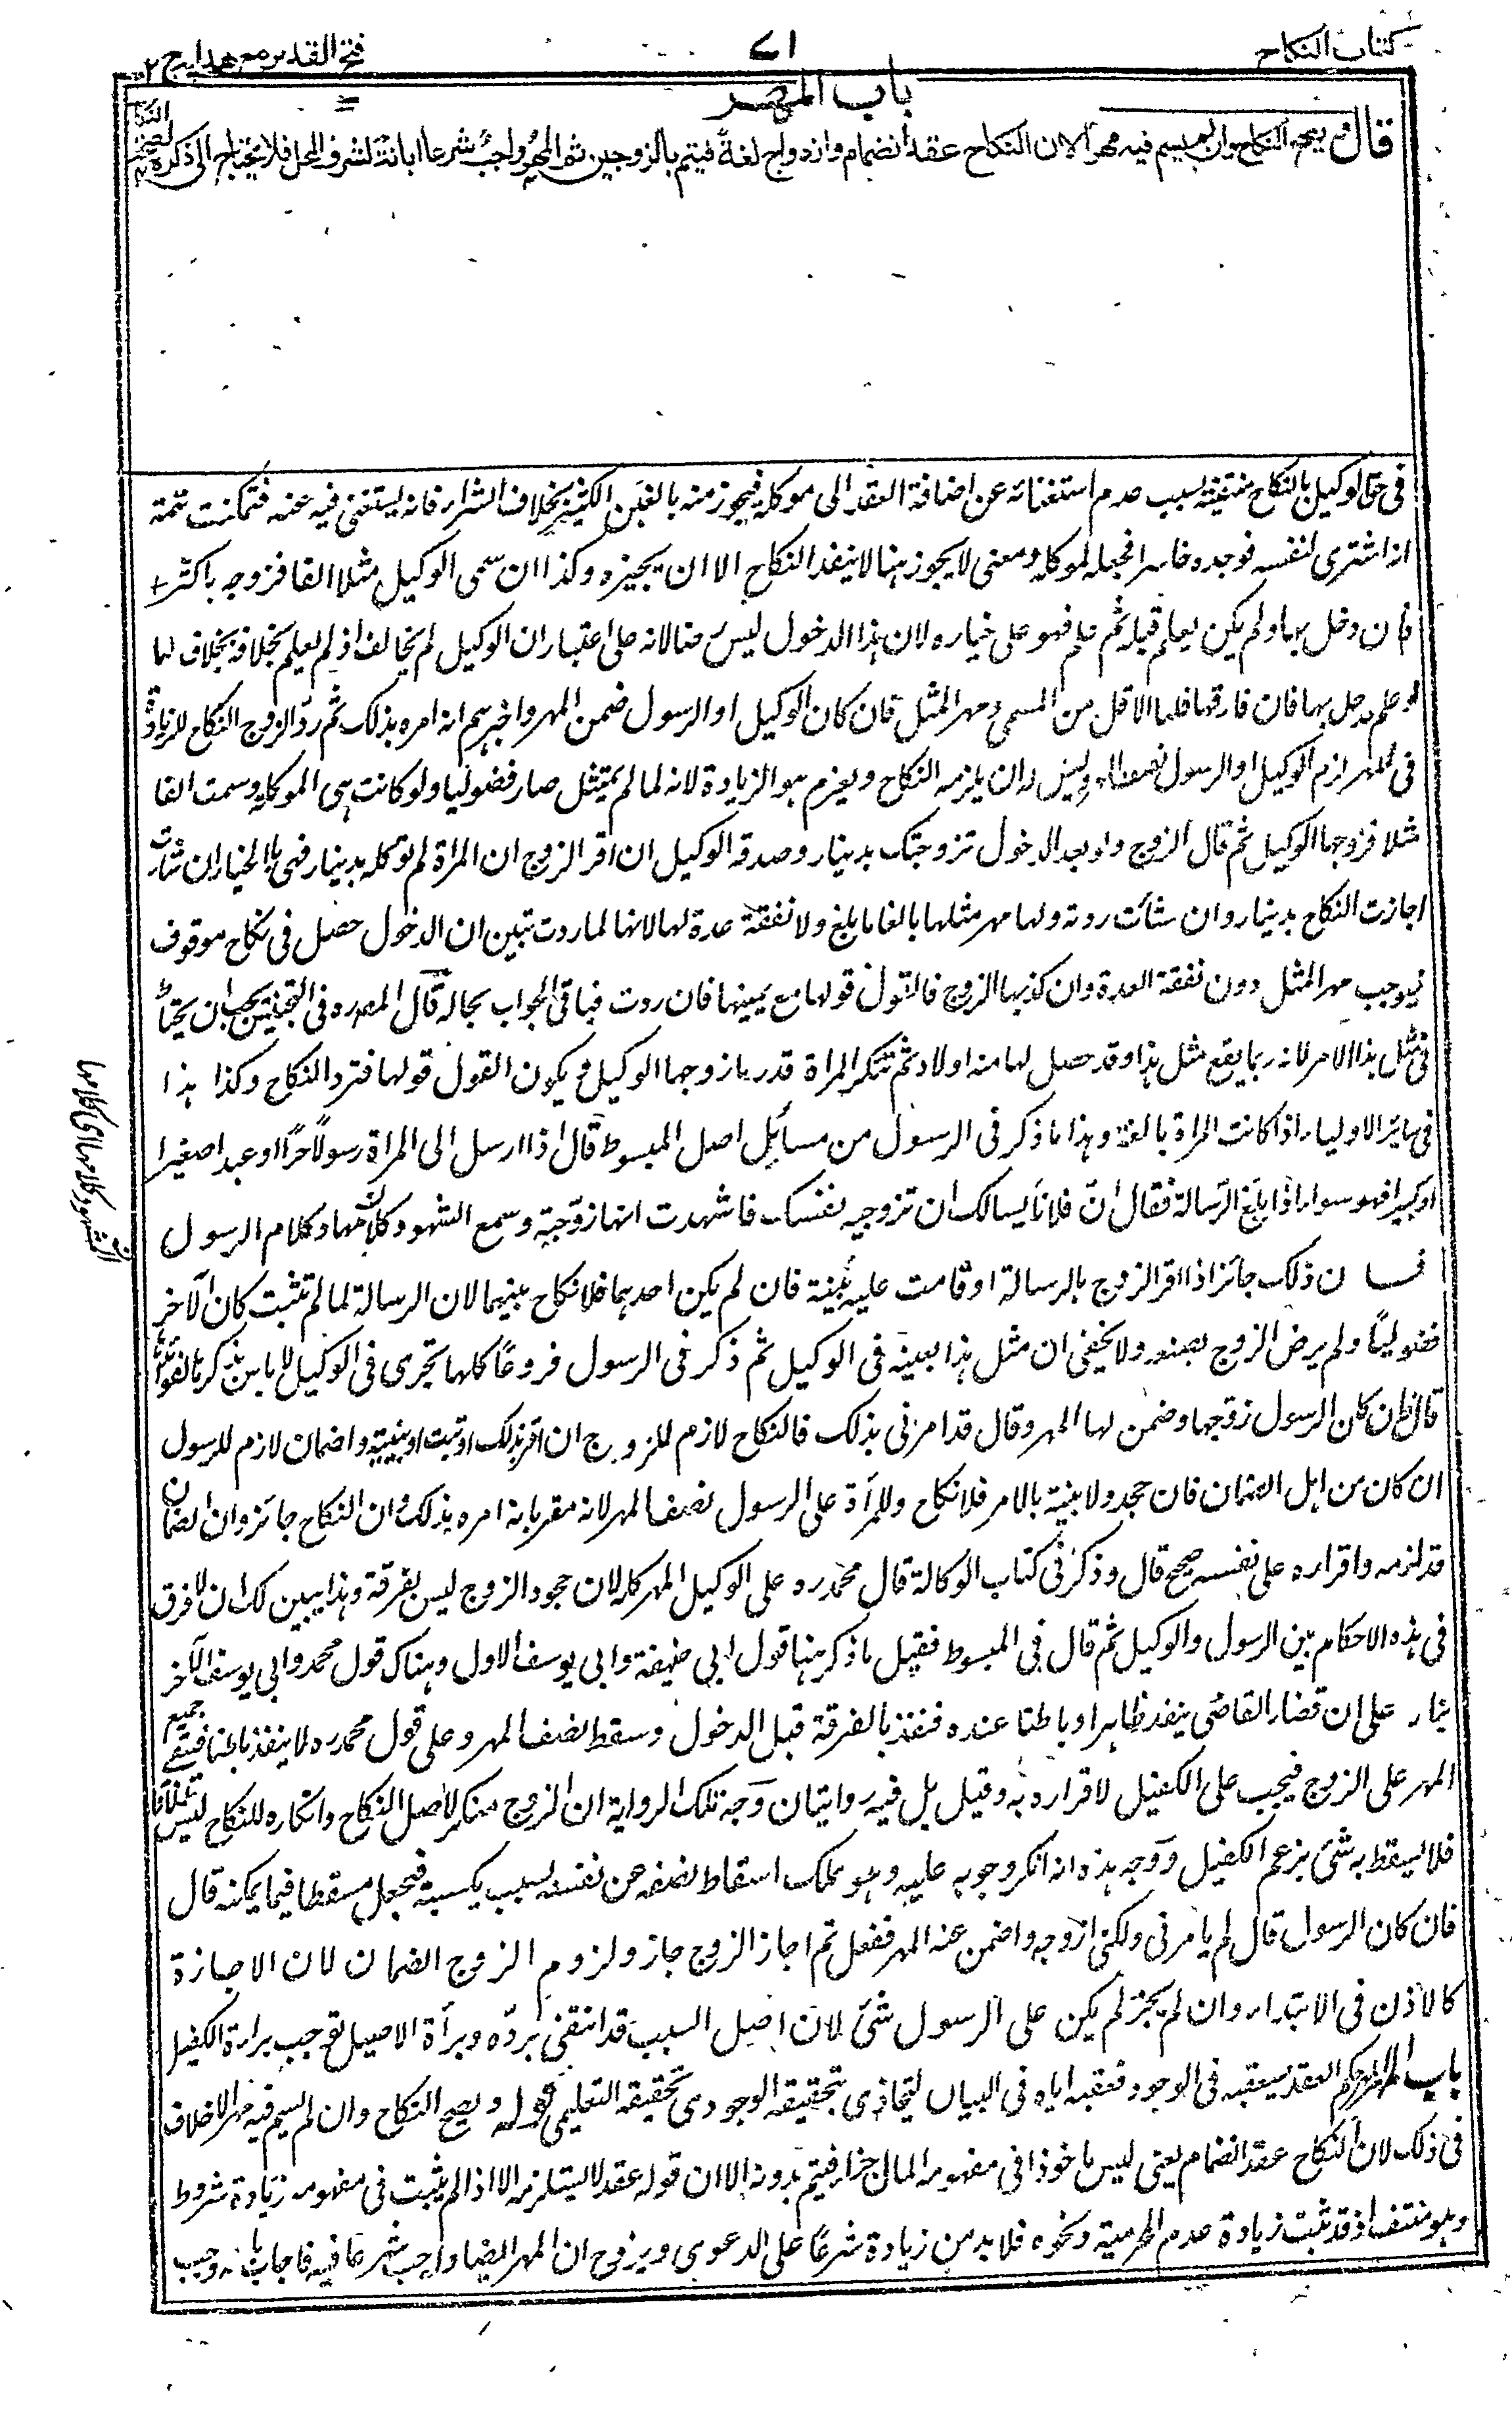 كتاب النكاح
٧١
فتح القدير مع هدايه ج ٢
باب المهر
قال ويصح النكاح وان لم يسم فيه مهرا لان النكاح عقد انضمام وازدواج لغة فيتم بالزوجين ثم المهر واجب شرعا ابانة لشرف المحل فلا يحتاج الى ذكره لصحة النكاح
فى حق الوكيل بالنكاح منتفية بسبب عدم استغنائه عن اضافة العقد الى موكله فيجوز منه بالغبن الكثير بخلاف الشراء فانه يستغنى فيه عنه فتمكنت تهمة
انه اشترى لنفسه فوجده خاسرا فجعله لموكله ومعنى لا يجوز ہنا لا ينفذ النكاح الا ان يجيزه وكذا ان سمى الوكيل مثلا الفا فزوجه باكثر
فان دخل بها ولم يكن يعلم قبله ثم علم فهو على خياره لان ہذا الدخول ليس رضا لانه على اعتبار ان الوكيل لم يخالف اذ لم يعلم بخلافه بخلاف ما
لو علم فدخل بها فان فارقها فلها الاقل من المسمى ومهر المثل فان كان الوكيل او الرسول ضمن المهر واخبرہم انه امره بذلك ثم رد الزوج النكاح للزيادة
فى المهر لزم الوكيل او الرسول نصفه وليس له ان يلزمه النكاح ويغرم ہو الزيادة لانه لما لم يمتثل صار فضوليا ولو كانت ہى الموكلة وسمت الفا
مثلا فزوجها الوكيل ثم قال الزوج ولو بعد الدخول تزوجتك بدينار وصدقه الوكيل ان اقر الزوج ان المراة لم توكله بدينار فهى بالخيار ان شاءت
اجازت النكاح بدينار وان شاءت ردته ولها مهر مثلها بالغا ما بلغ ولا نفقة عدة لها لانها لما ردت تبين ان الدخول حصل فى نكاح موقوف
فيوجب مهر المثل دون نفقة العدة وان كذبها الزوج فالقول قولها مع يمينها فان ردت فباقى الجواب بحاله قال المصره فى التجنيس يجب ان يحتاط
فى مثل ہذا الامر لانه ربما يقع مثل ہذا وقد حصل لها منه اولاد ثم تنكر المراة قدر ما زوجها الوكيل ويكون القول قولها فترد النكاح وكذا ہذا
فى سائر الاولياء اذا كانت المراة بالغة وہذا ما ذكر فى الرسول من مسائل اصل المبسوط قال اذا ارسل الى المراة رسولا حرا او عبدا صغيرا
او كبيرا فهو سواء اذا بلغ الرسالة فقال ان فلانا يسالك ان تزوجيه نفسك فاشهدت انها زوجته وسمع الشهود كلامهما وكلام الرسول
فان ذلك جائز اذا اقر الزوج بالرسالة او قامت عليه بينة فان لم يكن احدہما فلا نكاح بينهما لان الرسالة لما لم تثبت كان الآخر
فضوليا ولم يرض الزوج بصنعه ولا يخفى ان مثل ہذا بعينه فى الوكيل ثم ذكر فى الرسول فروعا كلها تجرى فى الوكيل لا باس بذكرہا لفوائدہا
قال فان كان الرسول زوجها وضمن لها المهر وقال قد امرنى بذلك فالنكاح لازم للزوج ان اقر بذلك او ثبت او ببينة والضمان لازم للرسول
ان كان من اہل الضمان فان جحد ولا بينة بالامر فلا نكاح وللمرأة على الرسول نصف المهر لانه مقر بانه امره بذلك وان النكاح جائز وان الضمان
قد لزمه واقراره على نفسه صحيح قال وذكر فى كتاب الوكالة قال محمدره على الوكيل المهر كله لان جحود الزوج ليس بفرقة وہذا يبين لك ان لا فرق
فى ہذه الاحكام بين الرسول والوكيل ثم قال فى المبسوط فقيل ما ذكر ہنا قول ابى حنيفة وابى يوسف الاول وہناك قول محمد وابى يوسف الآخر
بناء على ان قضاء القاضى ينفذ ظاہرا وباطنا عنده فنفذ بالفرقة قبل الدخول وسقط نصف المهر وعلى قول محمدره لا ينفذ باطنا فيبقى جميع
المهر على الزوج فيجب على الكفيل لاقراره به وقيل بل فيه روايتان وجه تلك الرواية ان الزوج منكر لاصل النكاح وانكاره للنكاح ليس طلاقا
فلا يسقط به شئ بزعم الكفيل ووجه ہذه انه انكر وجوبه عليه وہو يملك اسقاط نصفه عن نفسه بسبب يكسبه فيجعل مسقطا فيما يمكنه قال
فان كان الرسول قال لم يامرنى ولكنى ازوجه واضمن عنه المهر ففعل ثم اجاز الزوج جاز ولزم الزوج الضمان لان الاجازة
كالاذن فى الابتداء وان لم يجز لم يكن على الرسول شئ لان اصل السبب قد انتفى برده وبرأة الاصيل توجب براءة الكفيل
باب المهر حكم العقد يعقبه فى الوجود فعقبه اياه فى البيان ليحاذى بتحقيقه الوجودى تحقيقه التعليمى قوله ويصح النكاح وان لم يسم فيه مهرا لا خلاف
فى ذلك لان النكاح عقد انضمام يعنى ليس ماخوذا فى مفهومه المال جزاء فيتم بدونه الا ان قوله عقد لا يستلزمه الا اذا لم يثبت فى مفهومه زيادة شروط
وہو منتف اذ قد ثبت زيادة عدم المحرمية ونحوه فلا بد من زيادة شرعا على الدعوى ويرد ان المهر ايضا واجب شرعا فيه فاجاب بانه وجب